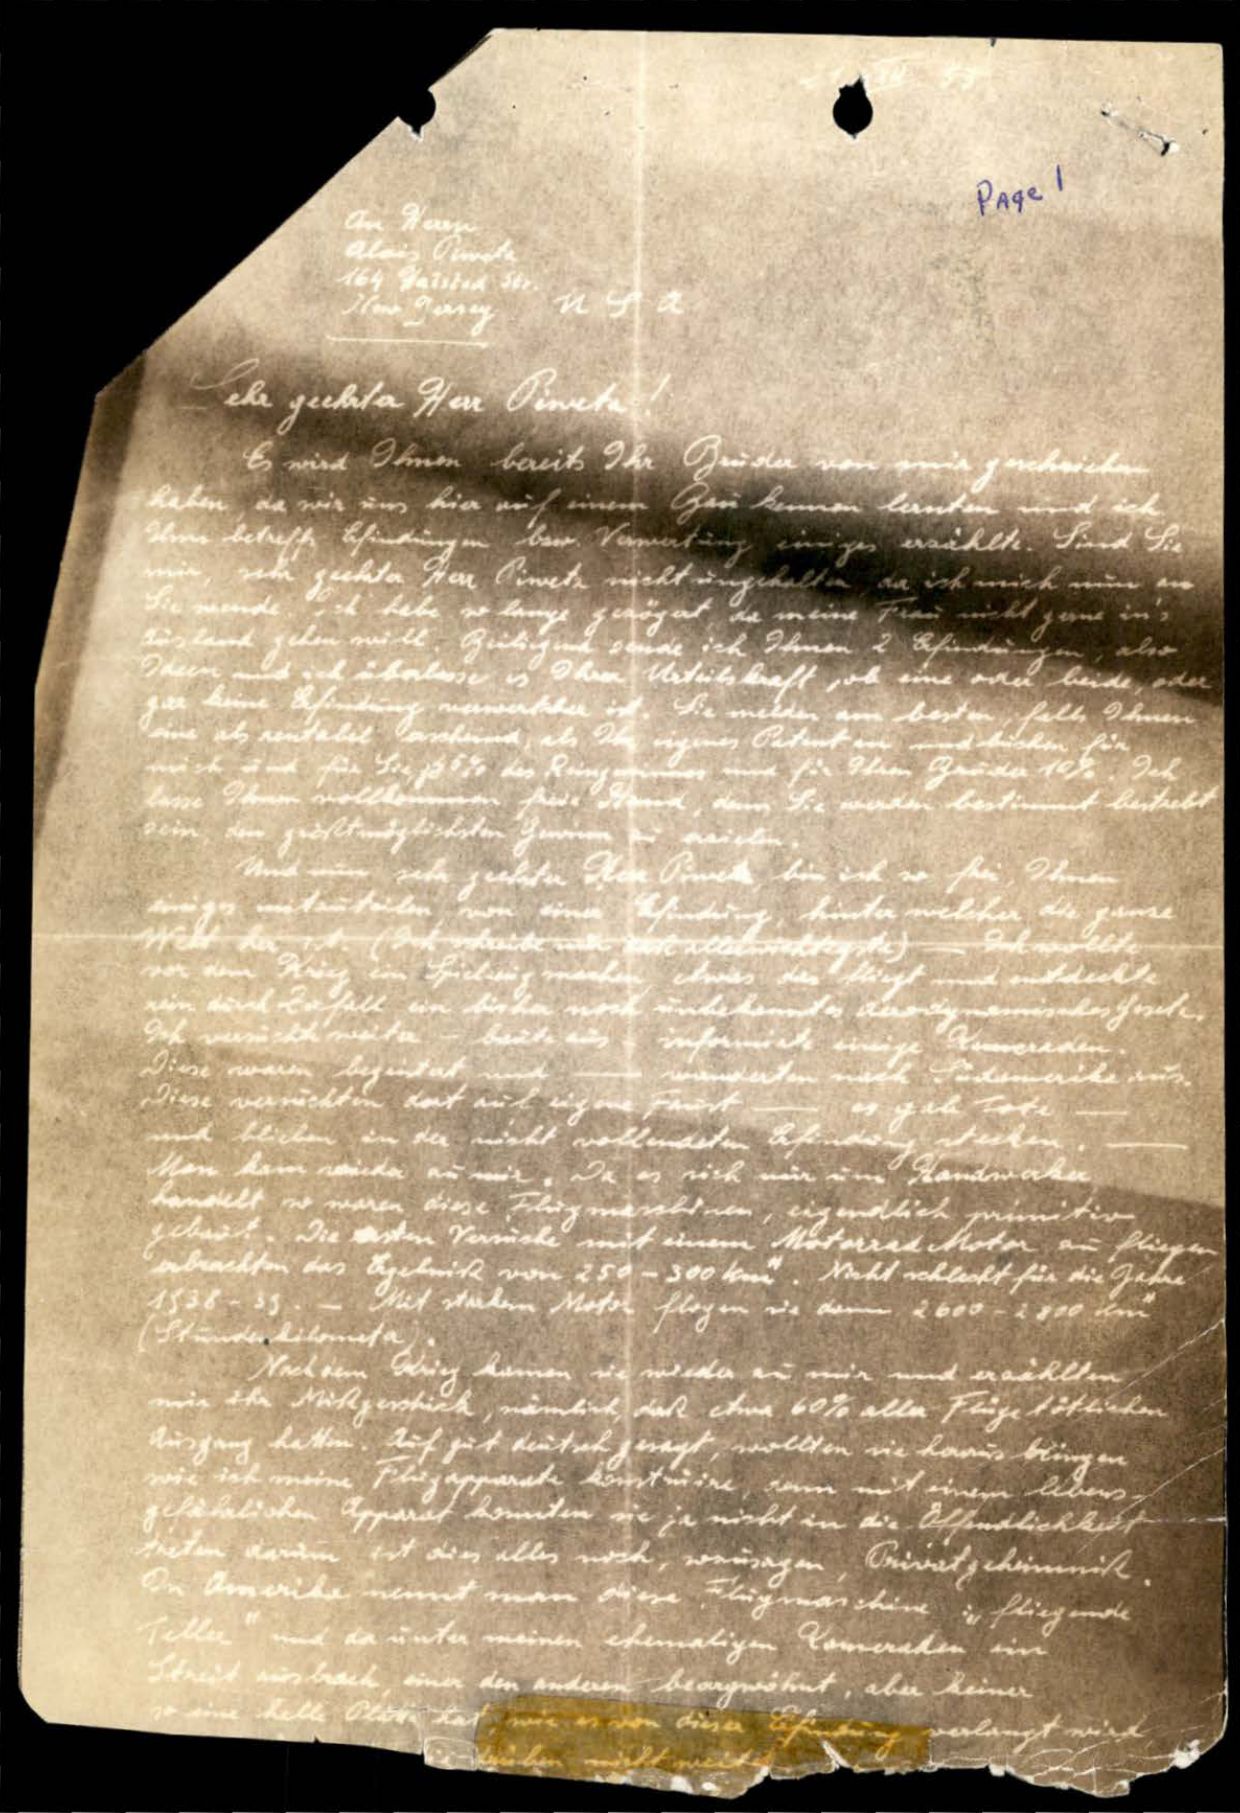 Page 1
An Herrn
Alois Pivetz
164 Halsted Str.
New Jersey U S A
Sehr geehrter Herr Pivetz!
Es wird Ihnen bereits Ihr Bruder von mir geschrieben
haben, da wir uns hier auf einem Bau kennen lernten und ich
Ihm betreffs Erfindungen bzw. Verwertung einiges erzählte. Sind Sie
mir, sehr geehrter Herr Pivetz nicht ungehalten, da ich mich nun an
Sie wende. Ich habe so lange gezögert da meine Frau nicht gerne in's
Ausland gehen will. Beiliegend sende ich Ihnen 2 Erfindungen, also
Ideen und ich überlasse es Ihrer Urteilskraft, ob eine oder beide, oder
gar keine Erfindung verwertbar ist. Sie melden am besten, falls Ihnen
eine als rentabel, als Ihr eigenes Patent an und für
mich und für Sie des und für Ihren Bruder 10%. Ich
lasse Ihnen vollkommen freie Hand, denn Sie werden bestimmt bestrebt
sein den größtmöglichsten Gewinn zu erzielen.
Und nun sehr geehrter Herr Pivetz, bin ich so frei, Ihnen
einiges mitzuteilen, von einer Erfindung, hinter welcher die ganze
Welt her ist. (Ich schreibe nur das allerwichtigste) — Ich wollte
vor dem Krieg ein Spielzeug machen, etwas das fliegt und entdeckte
rein durch Zufall ein bisher noch unbekanntes Aerodynamisches Gesetz.
Ich versuchte weiter — baute aus — informierte einige Kameraden.
Diese waren begeistert und — wanderten nach Südamerika aus.
Diese versuchten dort auf eigene Faust — es gab Tote —
und blieben in der nicht vollendeten Erfindung stecken. —
Man kam wieder zu mir. Da es sich nur um Handwerker
handelt so waren diese Flugmaschinen, eigendlich primitiv
gebaut. Die ersten Versuche mit einem Motorrad Motor zu fliegen
erbrachten das Ergebniß von 250 - 300 km". Nicht schlecht für die Jahre
1938 - 39. — Mit starkem Motor flogen sie dann 2600 - 2800 km"
(Stundenkilometer).
Nach dem Krieg kamen sie wieder zu mir und erzählten
mir ihr Mißgeschick, nämlich, daß etwa 60% aller Flüge tötlichen
Ausgang hatten. Auf gut deutsch gesagt, wollten sie heraus bringen
wie ich meine Flugapparate konstruire, denn mit einem lebens-
gefährlichen Apparat konnten sie ja nicht in die Öffendlichkeit
treten darum ist dies alles noch, sozusagen, Privatgeheimniß.
In Amerika nennt man diese Flugmaschine: „fliegende
Teller" und da unter meinen ehemaligen Kameraden ein
Streit ausbrach, einer den anderen beargwöhnt, aber keiner
so eine helle Platte hat, wie es von dieser Erfindung verlangt wird,
nicht weiter